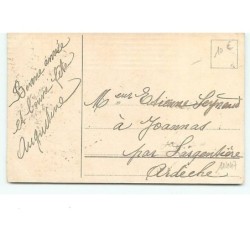 Bonne année
et bonne fête
Augustine
10 €
Meur Etienne
à Joannas
par Largentière
Ardèche